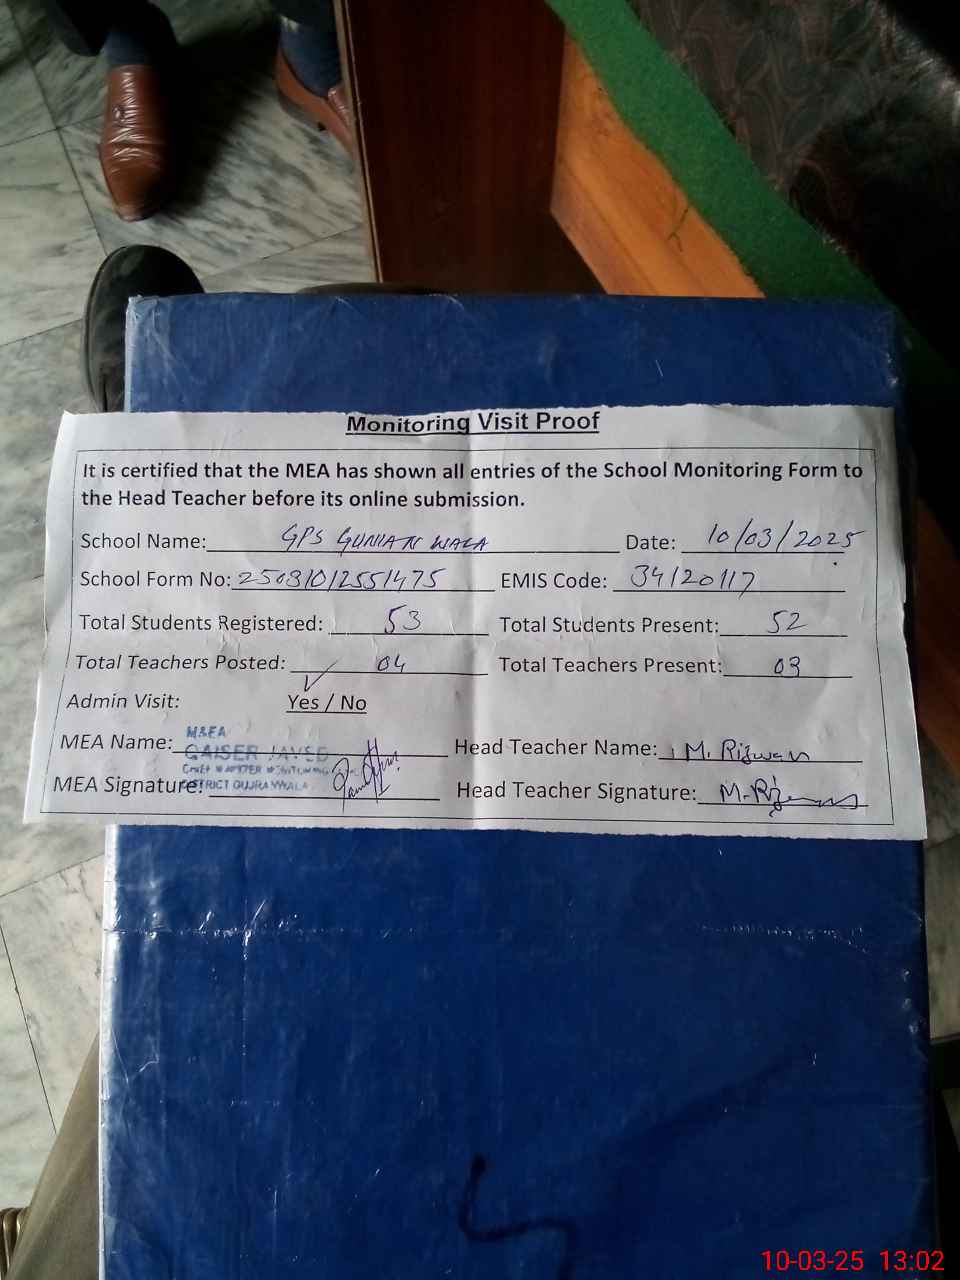 Monitoring Visit Proof
It is certified that the MEA has shown all entries of the School Monitoring Form to
the Head Teacher before its online submission.
School Name: GPS GUNIAN WALA Date: 10/03/2025
School Form No: 25031012551475 EMIS Code: 34120117
Total Students Registered: 53 Total Students Present: 52
Total Teachers Posted: 04 Total Teachers Present: 03
Admin Visit: Yes / No
M&EA
MEA Name: QAISER JAVED Head Teacher Name: M. Rizwan
CHIEF MINISTER MONITORING
MEA Signature: DISTRICT GUJRANWALA Head Teacher Signature: M. Rizwan
10-03-25 13:02